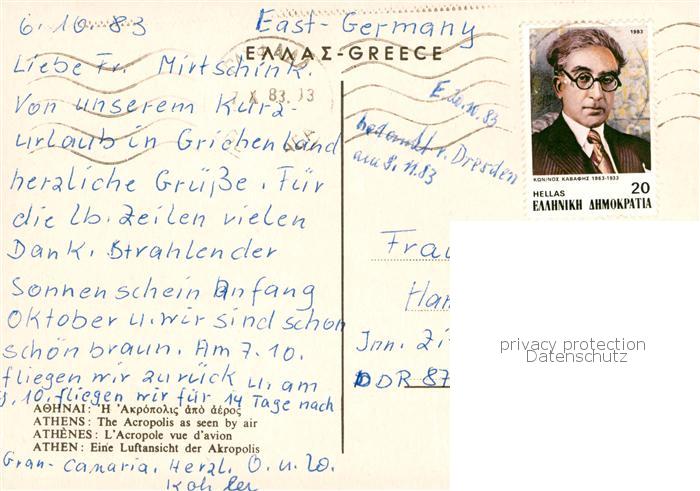 6.10.83
East-Germany
ΕΛΛΑΣ-GREECE
Liebe Fr. Mirtschink.
Von unserem Kurz-
urlaub in Grichenland
herzliche Grüße. Für
die lb. Zeilen vielen
Dank. Strahlender
Sonnenschein Anfang
Oktober u. wir sind schon
schön braun. Am 7.10.
fliegen wir zurück u. am
10. fliegen wir für 14 Tage nach
ΑΘΗΝΑΙ: Ἡ Ἀκρόπολις ἀπὸ ἀέρος
ATHENS: The Acropolis as seen by air
ATHÈNES: L'Acropole vue d'avion
ATHEN: Eine Luftansicht der Akropolis
Gran-Canaria. Herzl. O. u. W.
X 83.13
v. Dresden
am 9.11.83
1983
ΚΩΝ/ΝΟΣ ΚΑΒΑΦΗΣ 1863-1933
HELLAS 20
ΕΛΛΗΝΙΚΗ ΔΗΜΟΚΡΑΤΙΑ
Frau
Han
Jnn. Zi
DDR 87
privacy protection
Datenschutz